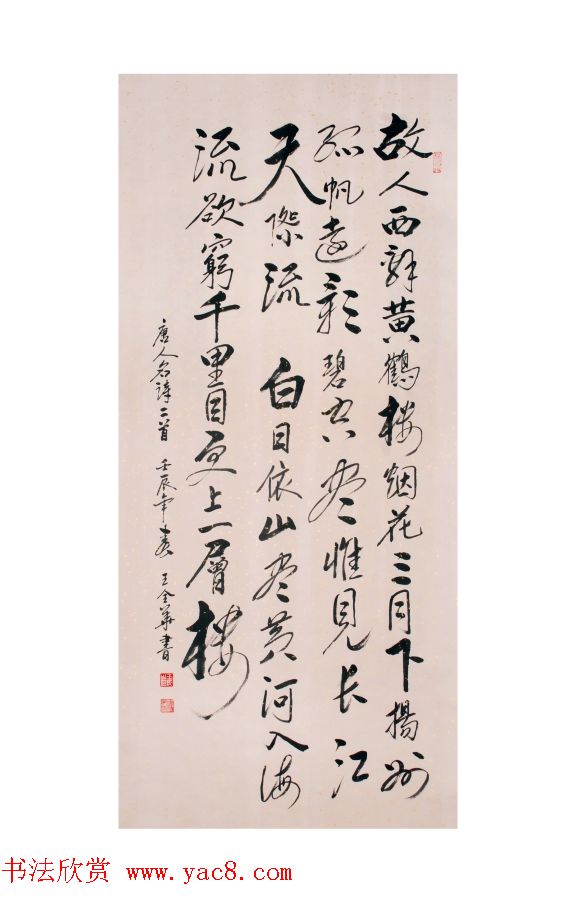 故人西辞黄鶴楼烟花三月下揚州
孤帆遠影碧空尽惟見長江
天際流 白日依山尽黄河入海
流欲窮千里目更上一層楼
唐人名詩二首 壬辰年春 王全華書
书法欣赏 www.yac8.com